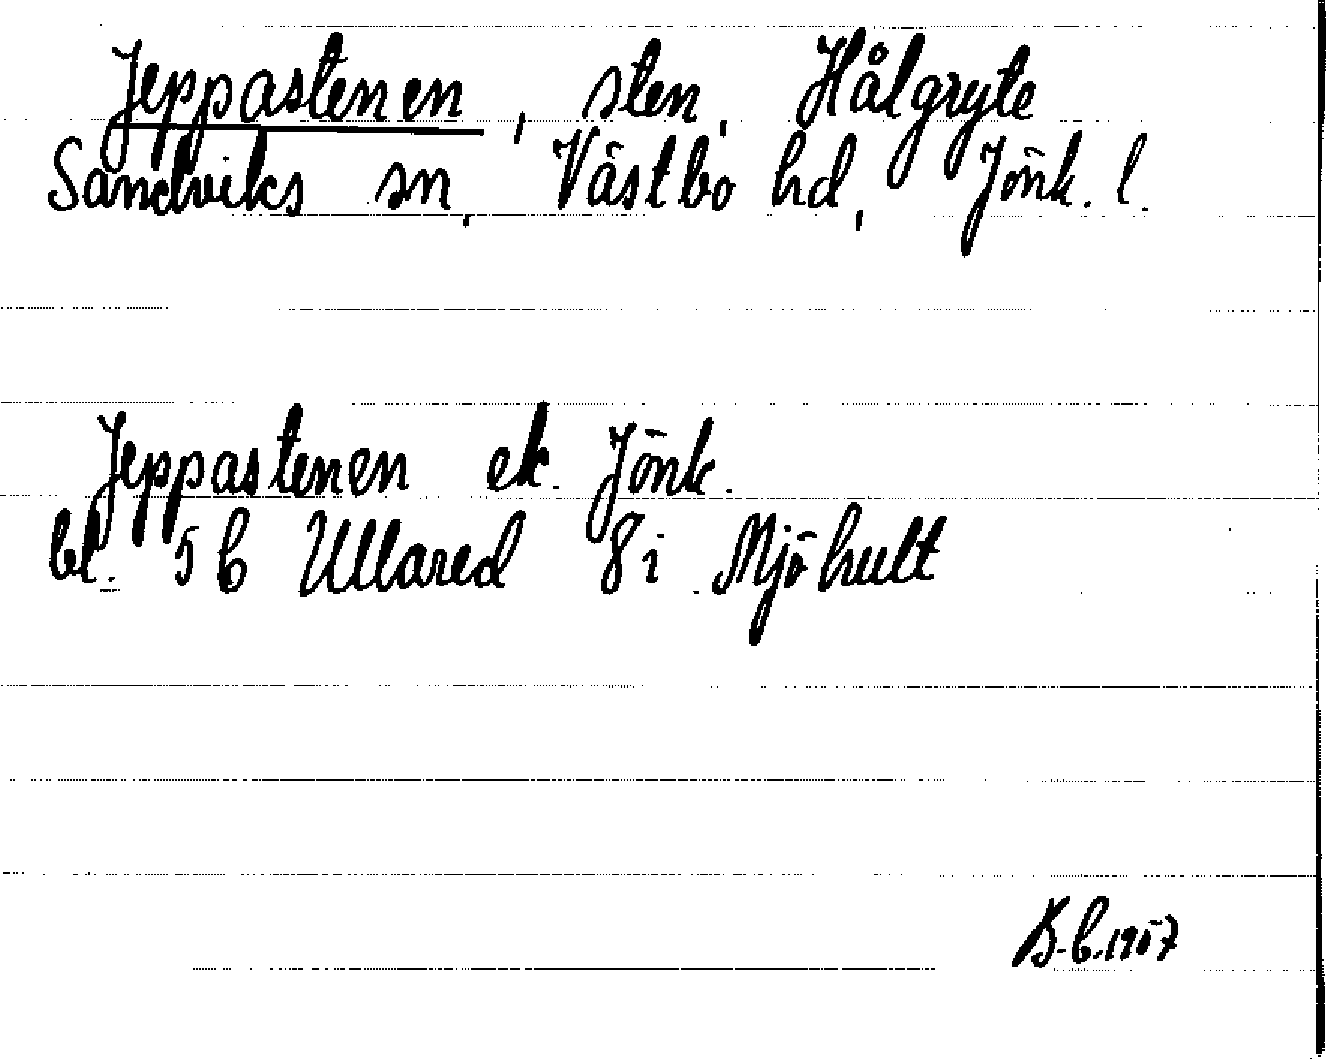 Jeppastenen, sten, Hålgryte
Sandviks sn, Västbo hd, Jönk. l.
Jeppastenen ek. Jönk.
bl. 5 b Ullared 8 i Mjöhult
B-b. 1957